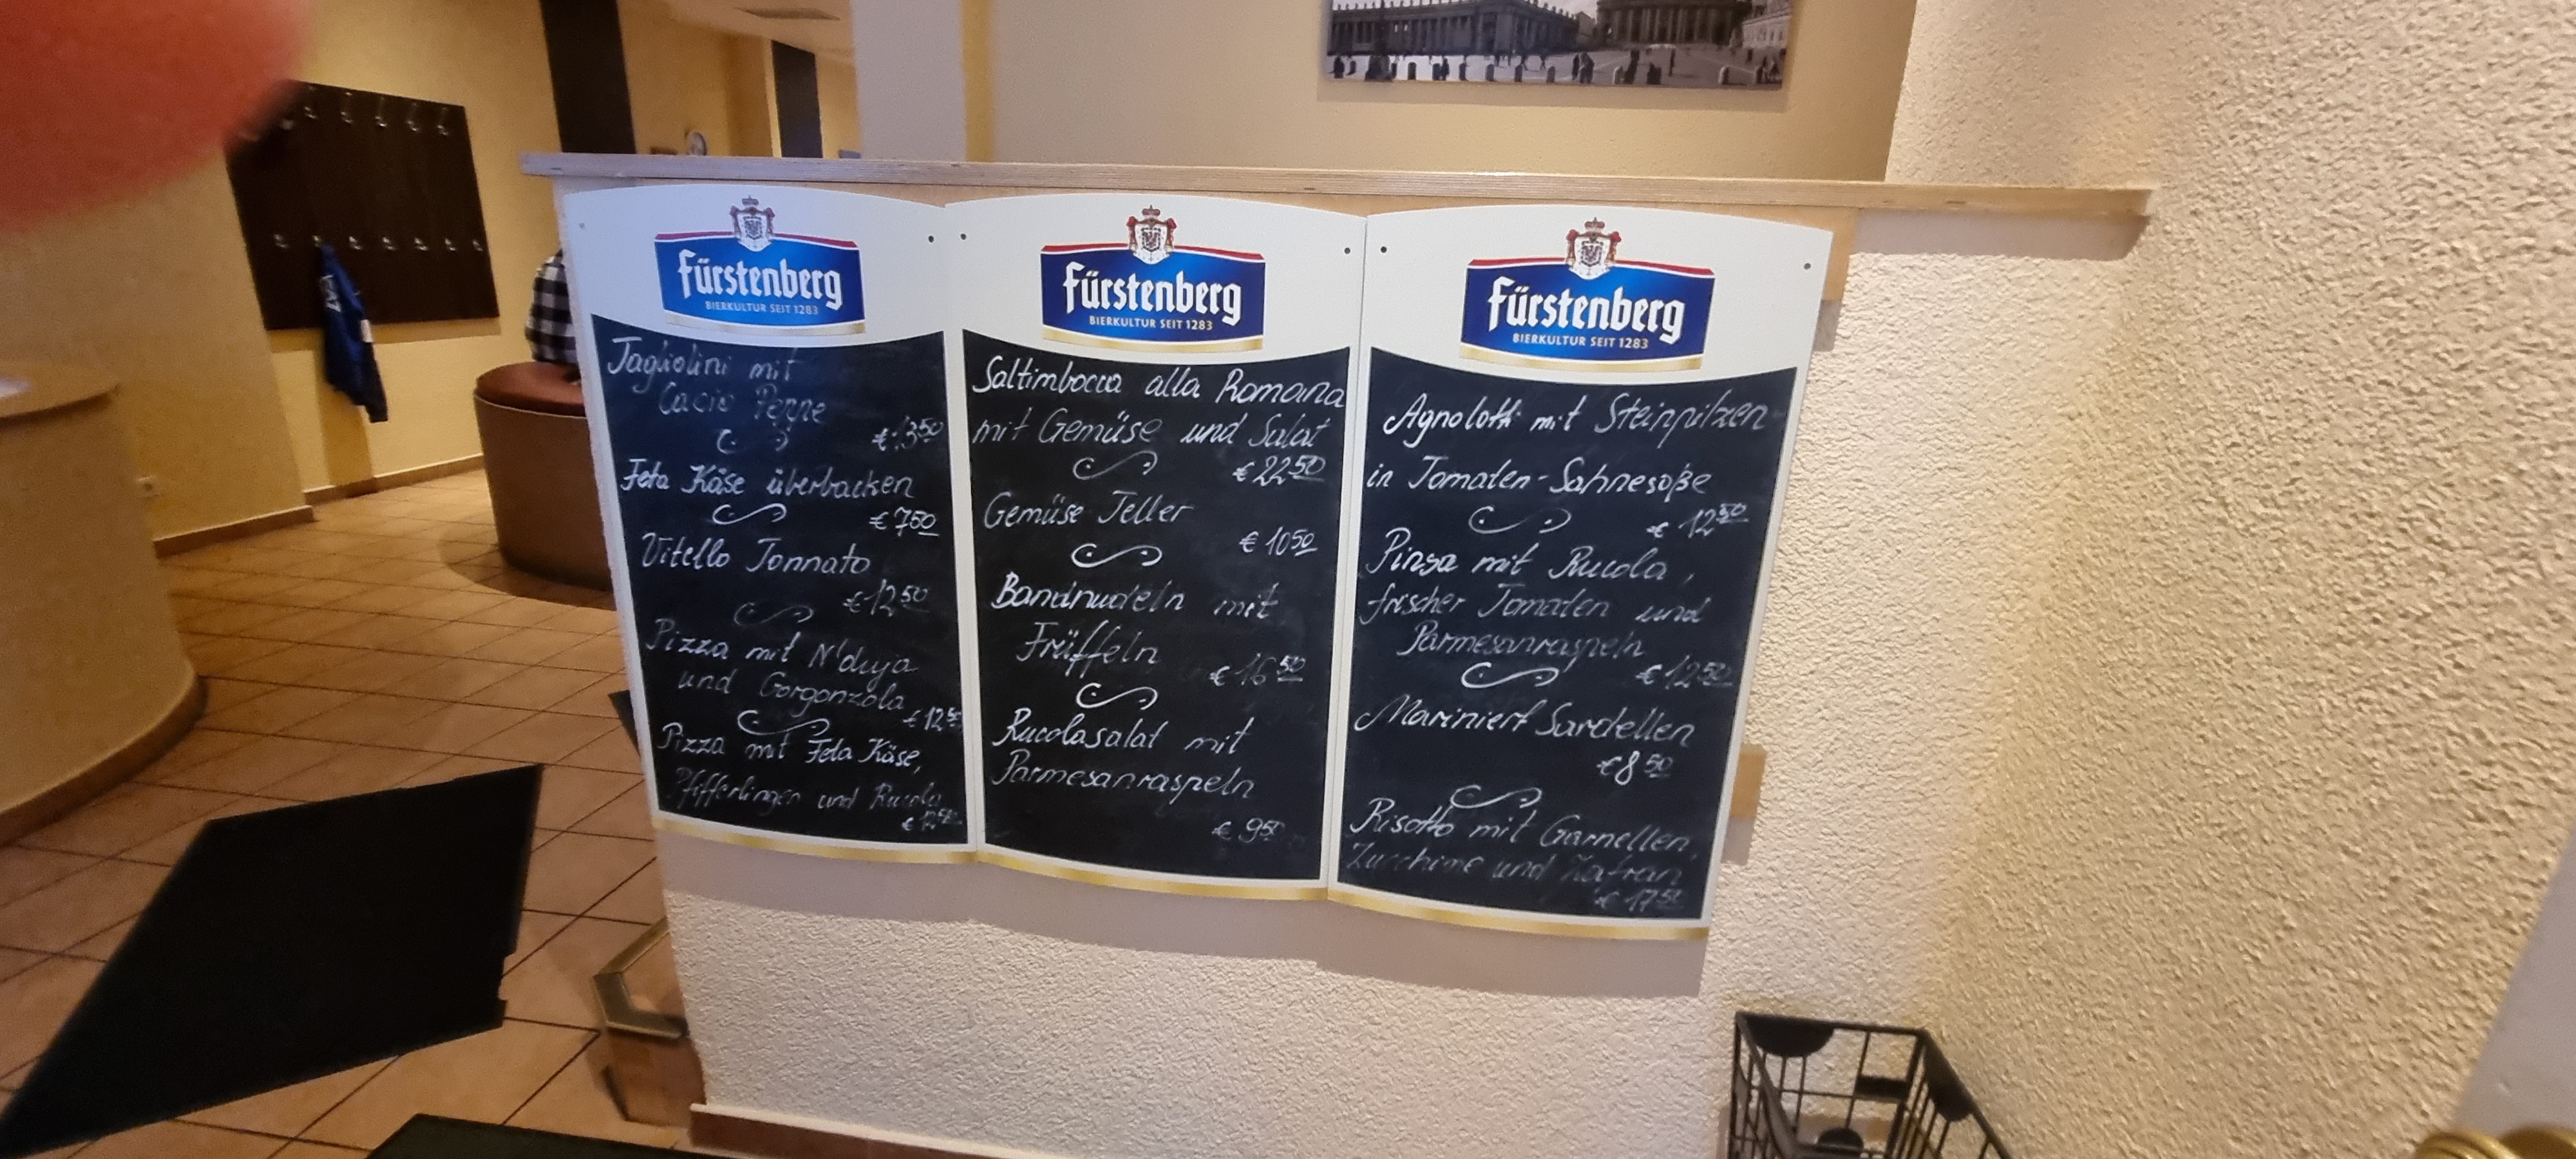 Fürstenberg
BIERKULTUR SEIT 1283
Tagliolini mit
Cacio Pepe
€ 13 50
Feta Käse überbacken
€ 7 50
Vitello Tonnato
€ 12 50
Pizza mit N'duja
und Gorgonzola
€ 12 50
Pizza mit Feta Käse,
Pfifferlingen und Rucola
€ 12 50
Fürstenberg
BIERKULTUR SEIT 1283
Saltimbocca alla Romana
mit Gemüse und Salat
€ 22 50
Gemüse Teller
€ 10 50
Bandnudeln mit
Trüffeln
€ 16 50
Rucolasalat mit
Parmesanraspeln
€ 9 50
Fürstenberg
BIERKULTUR SEIT 1283
Agnolotti mit Steinpilzen
in Tomaten-Sahnesoße
€ 12 50
Pinsa mit Rucola,
frischer Tomaten und
Parmesanraspeln
€ 12 50
Mariniert Sardellen
€ 8 50
Risotto mit Garnellen,
Zucchine und Zafran
€ 17 50